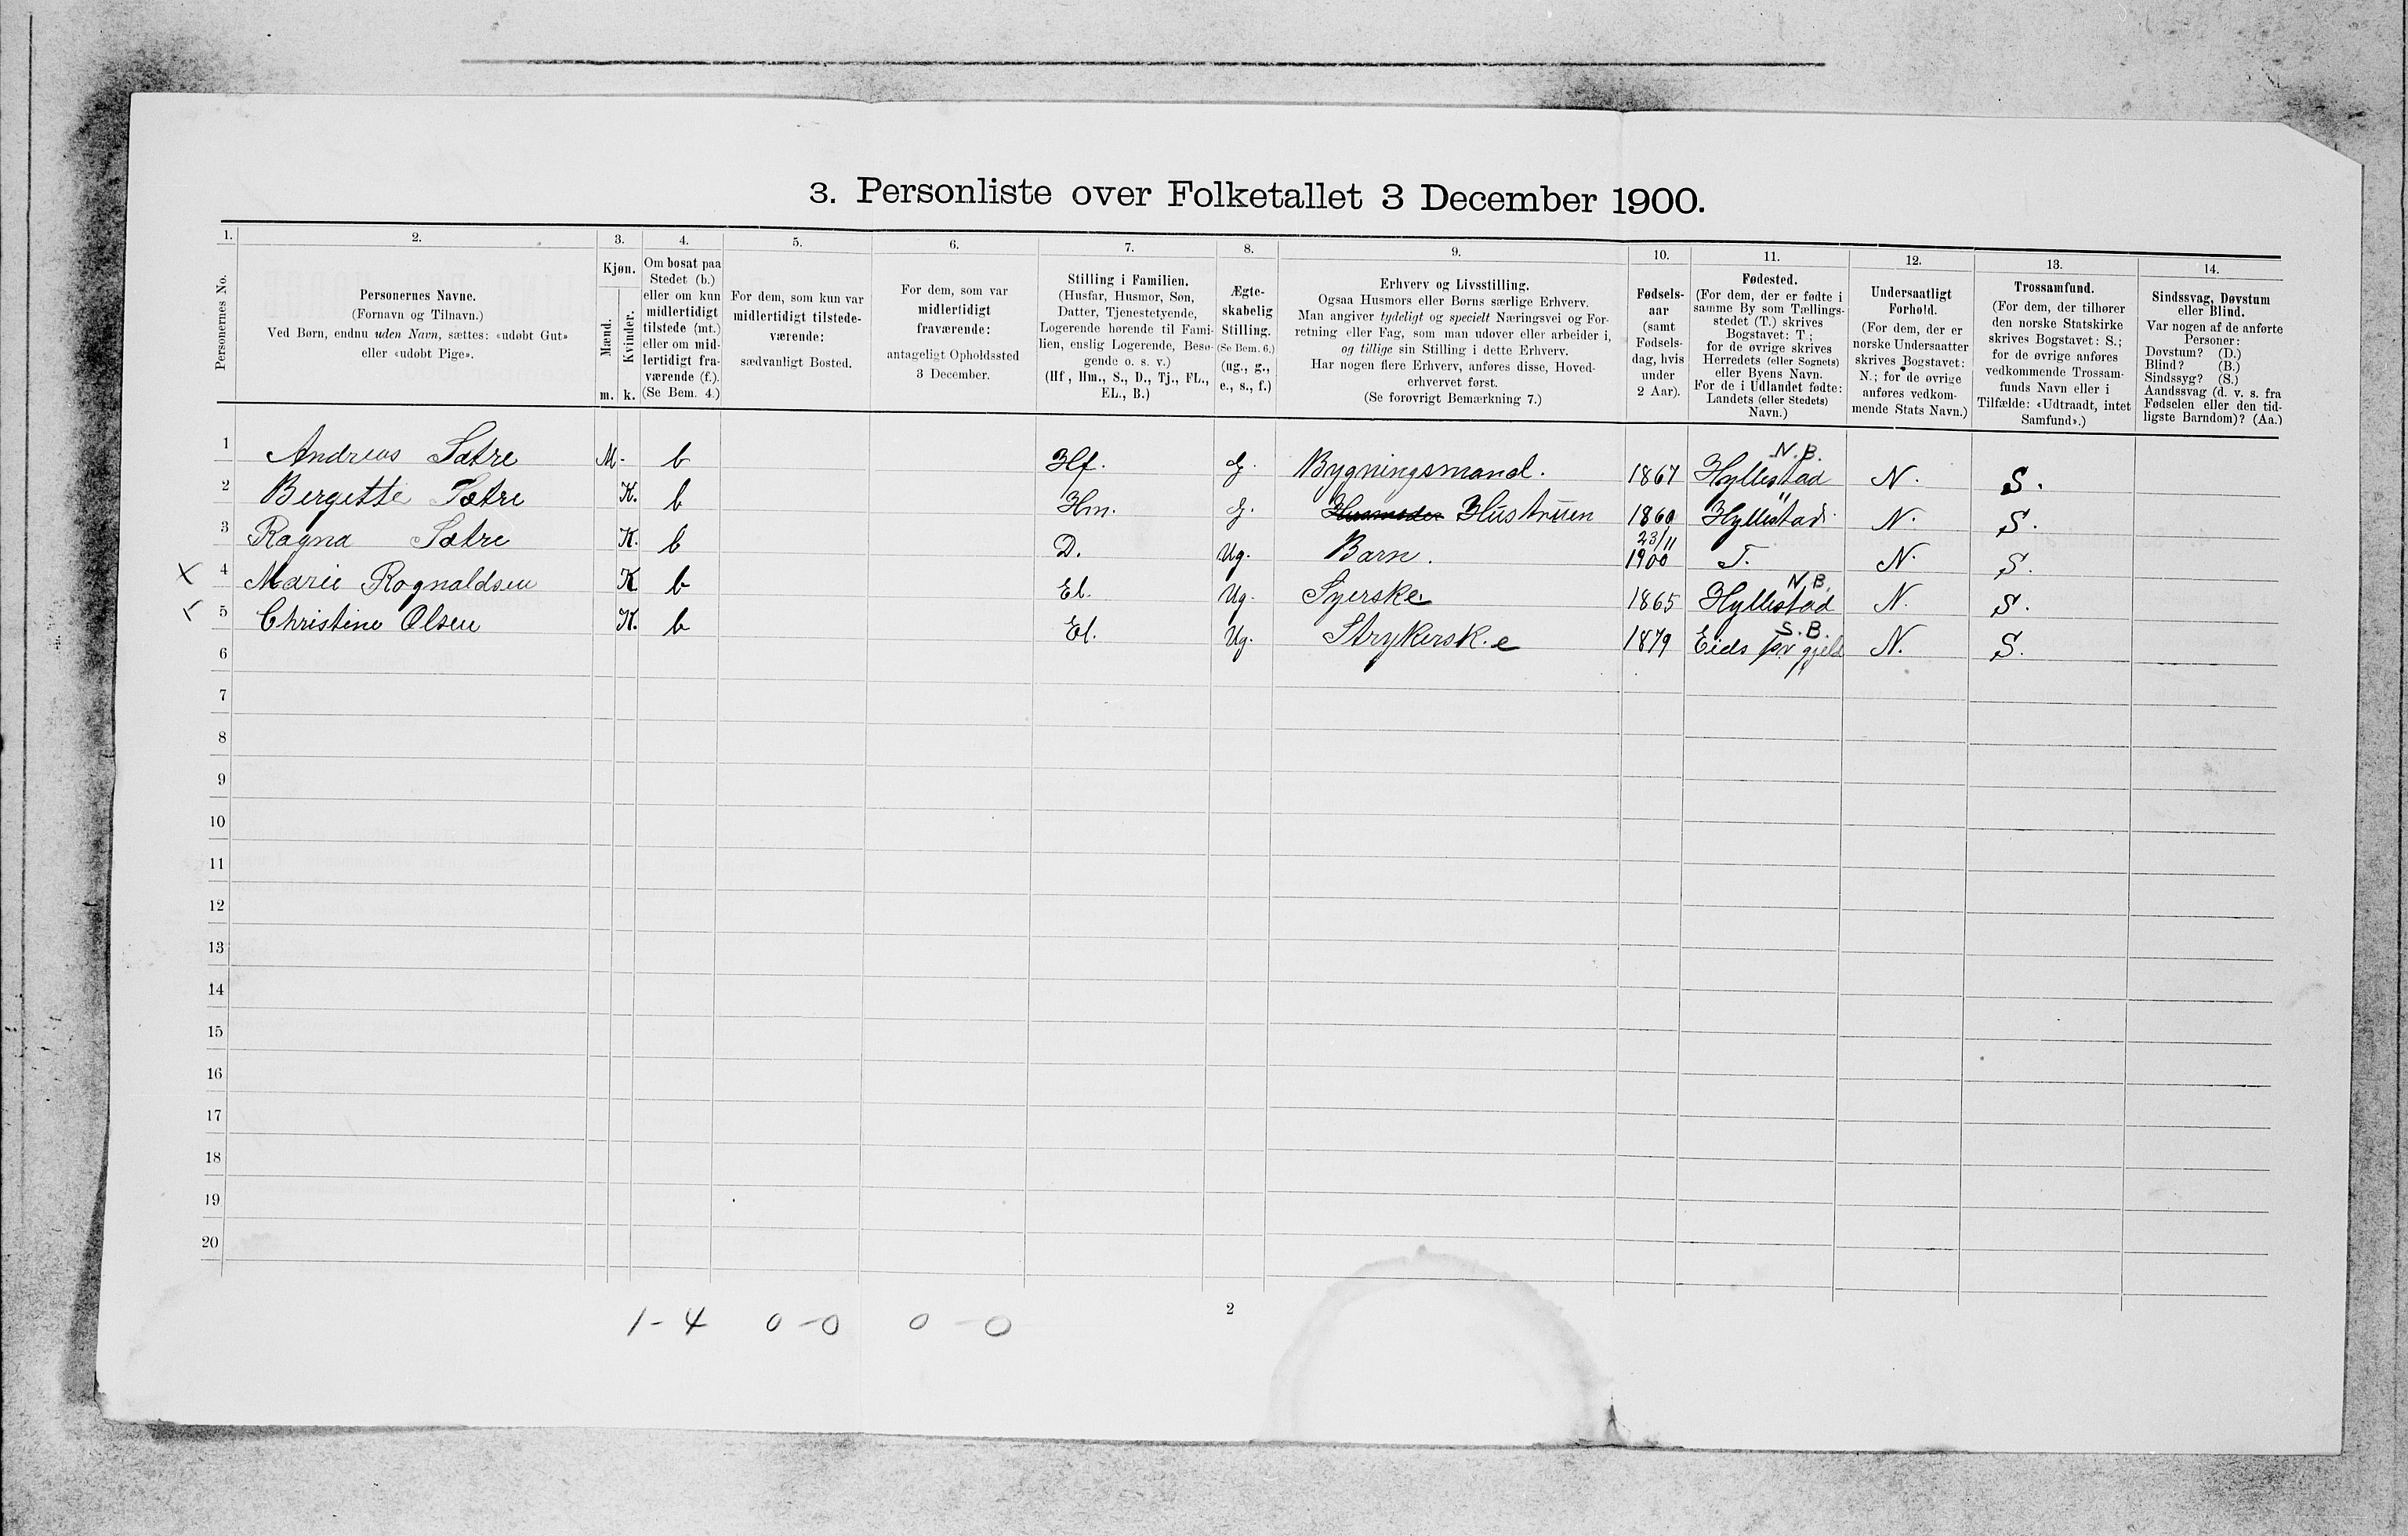 3. Personliste over Folketallet 3 December 1900.
1. 2. 3. 4. 5. 6. 7. 8. 9. 10. 11. 12. 13. 14.
Personernes No.
Personernes Navne.
(Fornavn og Tilnavn.)
Ved Børn, endnu uden Navn, sættes: «udøbt Gut»
eller «udøbt Pige».
Kjøn.
Mænd.
Kvinder.
m. k.
Om bosat paa
Stedet (b.)
eller om kun
midlertidigt
tilstede (mt.)
eller om mid-
lertidigt fra-
værende (f.).
(Se Bem. 4.)
For dem, som kun var
midlertidigt tilstede-
værende:
sædvanligt Bosted.
For dem, som var
midlertidigt
fraværende:
antageligt Opholdssted
3 December.
Stilling i Familien.
(Husfar, Husmor, Søn,
Datter, Tjenestetyende,
Logerende hørende til Fami-
lien, enslig Logerende, Besø-
gende o. s. v.)
(Hf, Hm., S., D., Tj., FL.,
EL., B.)
Ægte-
skabelig
Stilling.
(Se Bem. 6.)
(ug., g.,
e., s., f.)
Erhverv og Livsstilling.
Ogsaa Husmors eller Børns særlige Erhverv.
Man angiver tydeligt og specielt Næringsvei og For-
retning eller Fag, som man udøver eller arbeider i,
og tillige sin Stilling i dette Erhverv.
Har nogen flere Erhverv, anføres disse, Hoved-
erhvervet først.
(Se forøvrigt Bemærkning 7.)
Fødsels-
aar
(samt
Fødsels-
dag, hvis
under
2 Aar).
Fødested.
(For dem, der er fødte i
samme By som Tællings-
stedet (T.) skrives
Bogstavet: T.;
for de øvrige skrives
Herredets (eller Sognets)
eller Byens Navn.
For de i Udlandet fødte:
Landets (eller Stedets)
Navn.)
Undersaatligt
Forhold.
(For dem, der er
norske Undersaatter
skrives Bogstavet:
N.; for de øvrige
anføres vedkom-
mende Stats Navn.)
Trossamfund.
(For dem, der tilhører
den norske Statskirke
skrives Bogstavet: S.;
for de øvrige anføres
vedkommende Trossam-
funds Navn eller i
Tilfælde: «Udtraadt, intet
Samfund».)
Sindssvag, Døvstum
eller Blind.
Var nogen af de anførte
Personer:
Døvstum? (D.)
Blind? (B.)
Sindssyg? (S.)
Aandssvag (d. v. s. fra
Fødselen eller den tid-
ligste Barndom)? (Aa.)
N.B.
1 Andreas Sætre M. b Hf. g. Bygningsmand. 1867 Hyllestad N. S.
"
2 Bergette Sætre K. b Hm. g. Husmoder Hustruen 1860 Hyllestad. N. S.
23/11
3 Ragna Sætre K. b D. Ug. Barn. 1900 T. N. S.
N.B.
X 4 Marie Rognaldsen K b El. Ug. Syerske. 1865 Hyllestad N. S.
S.B.
x 5 Christine Olsen K. b El. Ug. Strykersk.e 1879 Eids pr gjeld N. S.
6
7
8
9
10
11
12
13
14
15
16
17
18
19
20
1-4 0-0 0-0
2